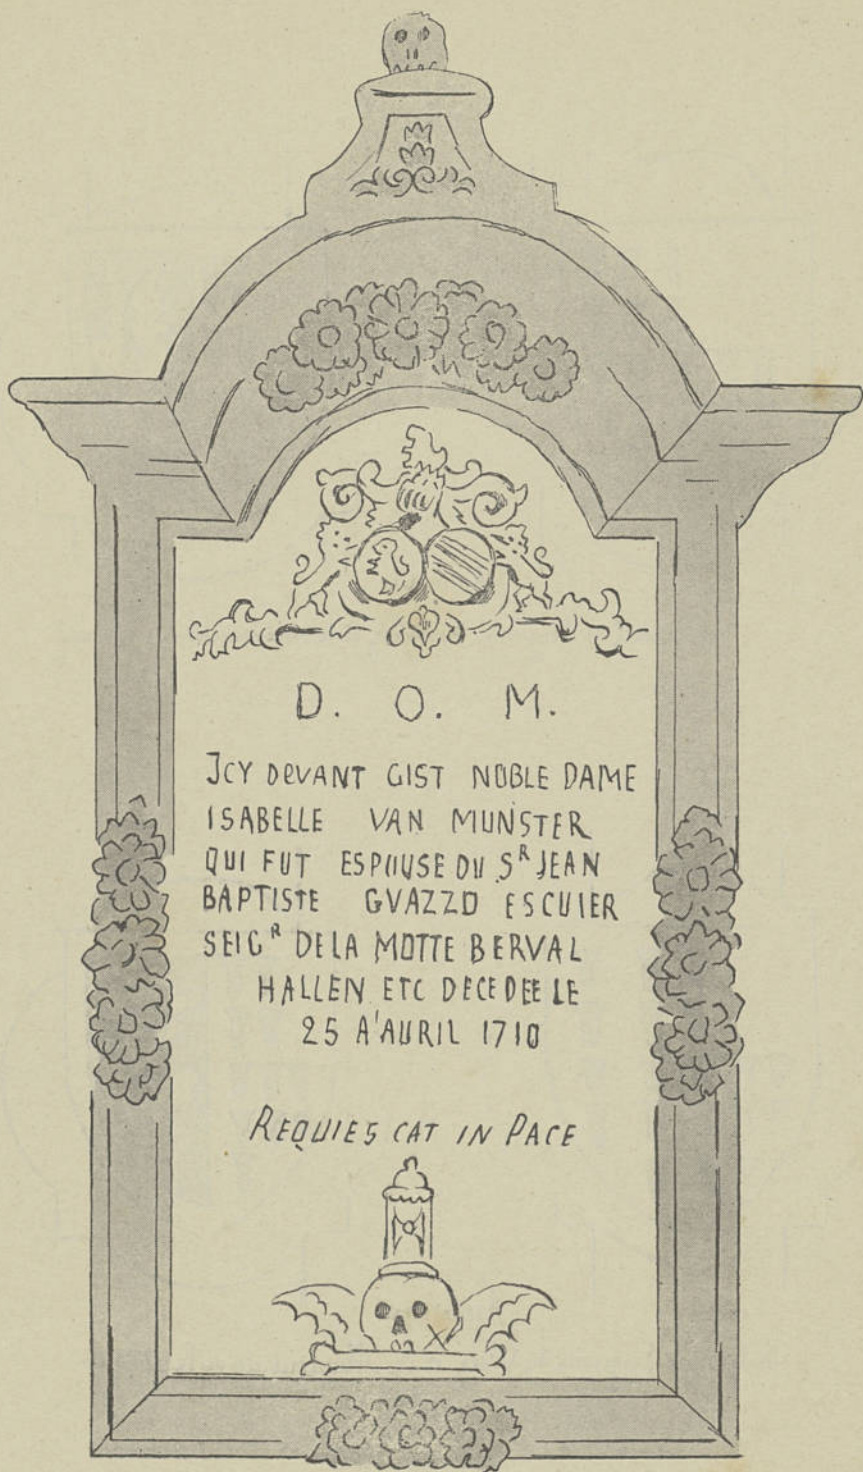 D. O. M.
JCY DEVANT GIST NOBLE DAME
ISABELLE VAN MUNSTER
QUI FUT ESPOUSE DU S^R JEAN
BAPTISTE GVAZZO ESCUIER
SEIG^R DE LA MOTTE BERVAL
HALLEN ETC DECEDEE LE
25 A'AURIL 1710
REQUIESCAT IN PACE